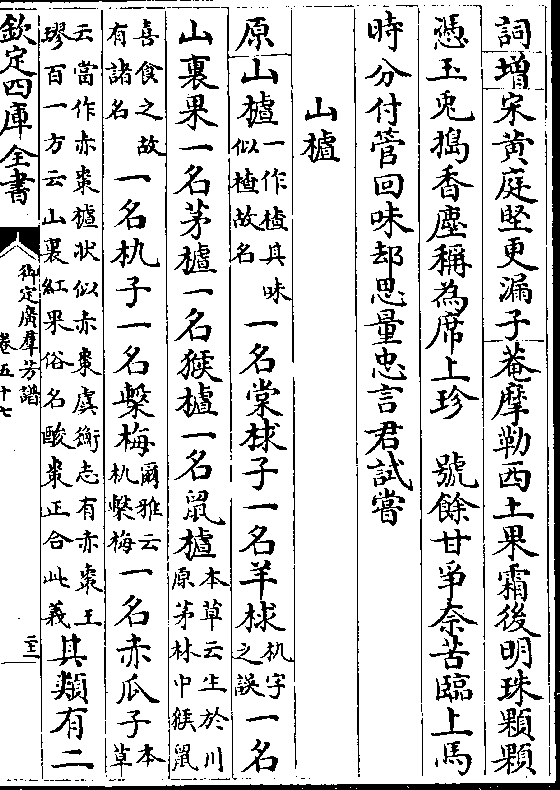 詞增宋黄庭堅更漏子菴摩勒西土果霜後明珠顆顆
憑玉兎搗香塵稱為席上珍　號餘甘爭奈苦臨上馬
時分付管回味却思量忠言君試嘗
山樝
原山樝一作樝其味似楂故名一名棠梂子一名羊梂杋字之誤一名
山裏果一名茅樝一名猴樝一名鼠樝本草云生於川原茅林中猴鼠
喜食之故有諸名一名杋子一名檕梅爾雅云杋檕梅一名赤瓜子本草
云當作赤棗樝狀似赤棗虞衡志有赤棗王璆百一方云山裏紅果俗名酸棗正合此義其類有二
欽定四庫全書
御定廣羣芳譜
卷五十七
二十二